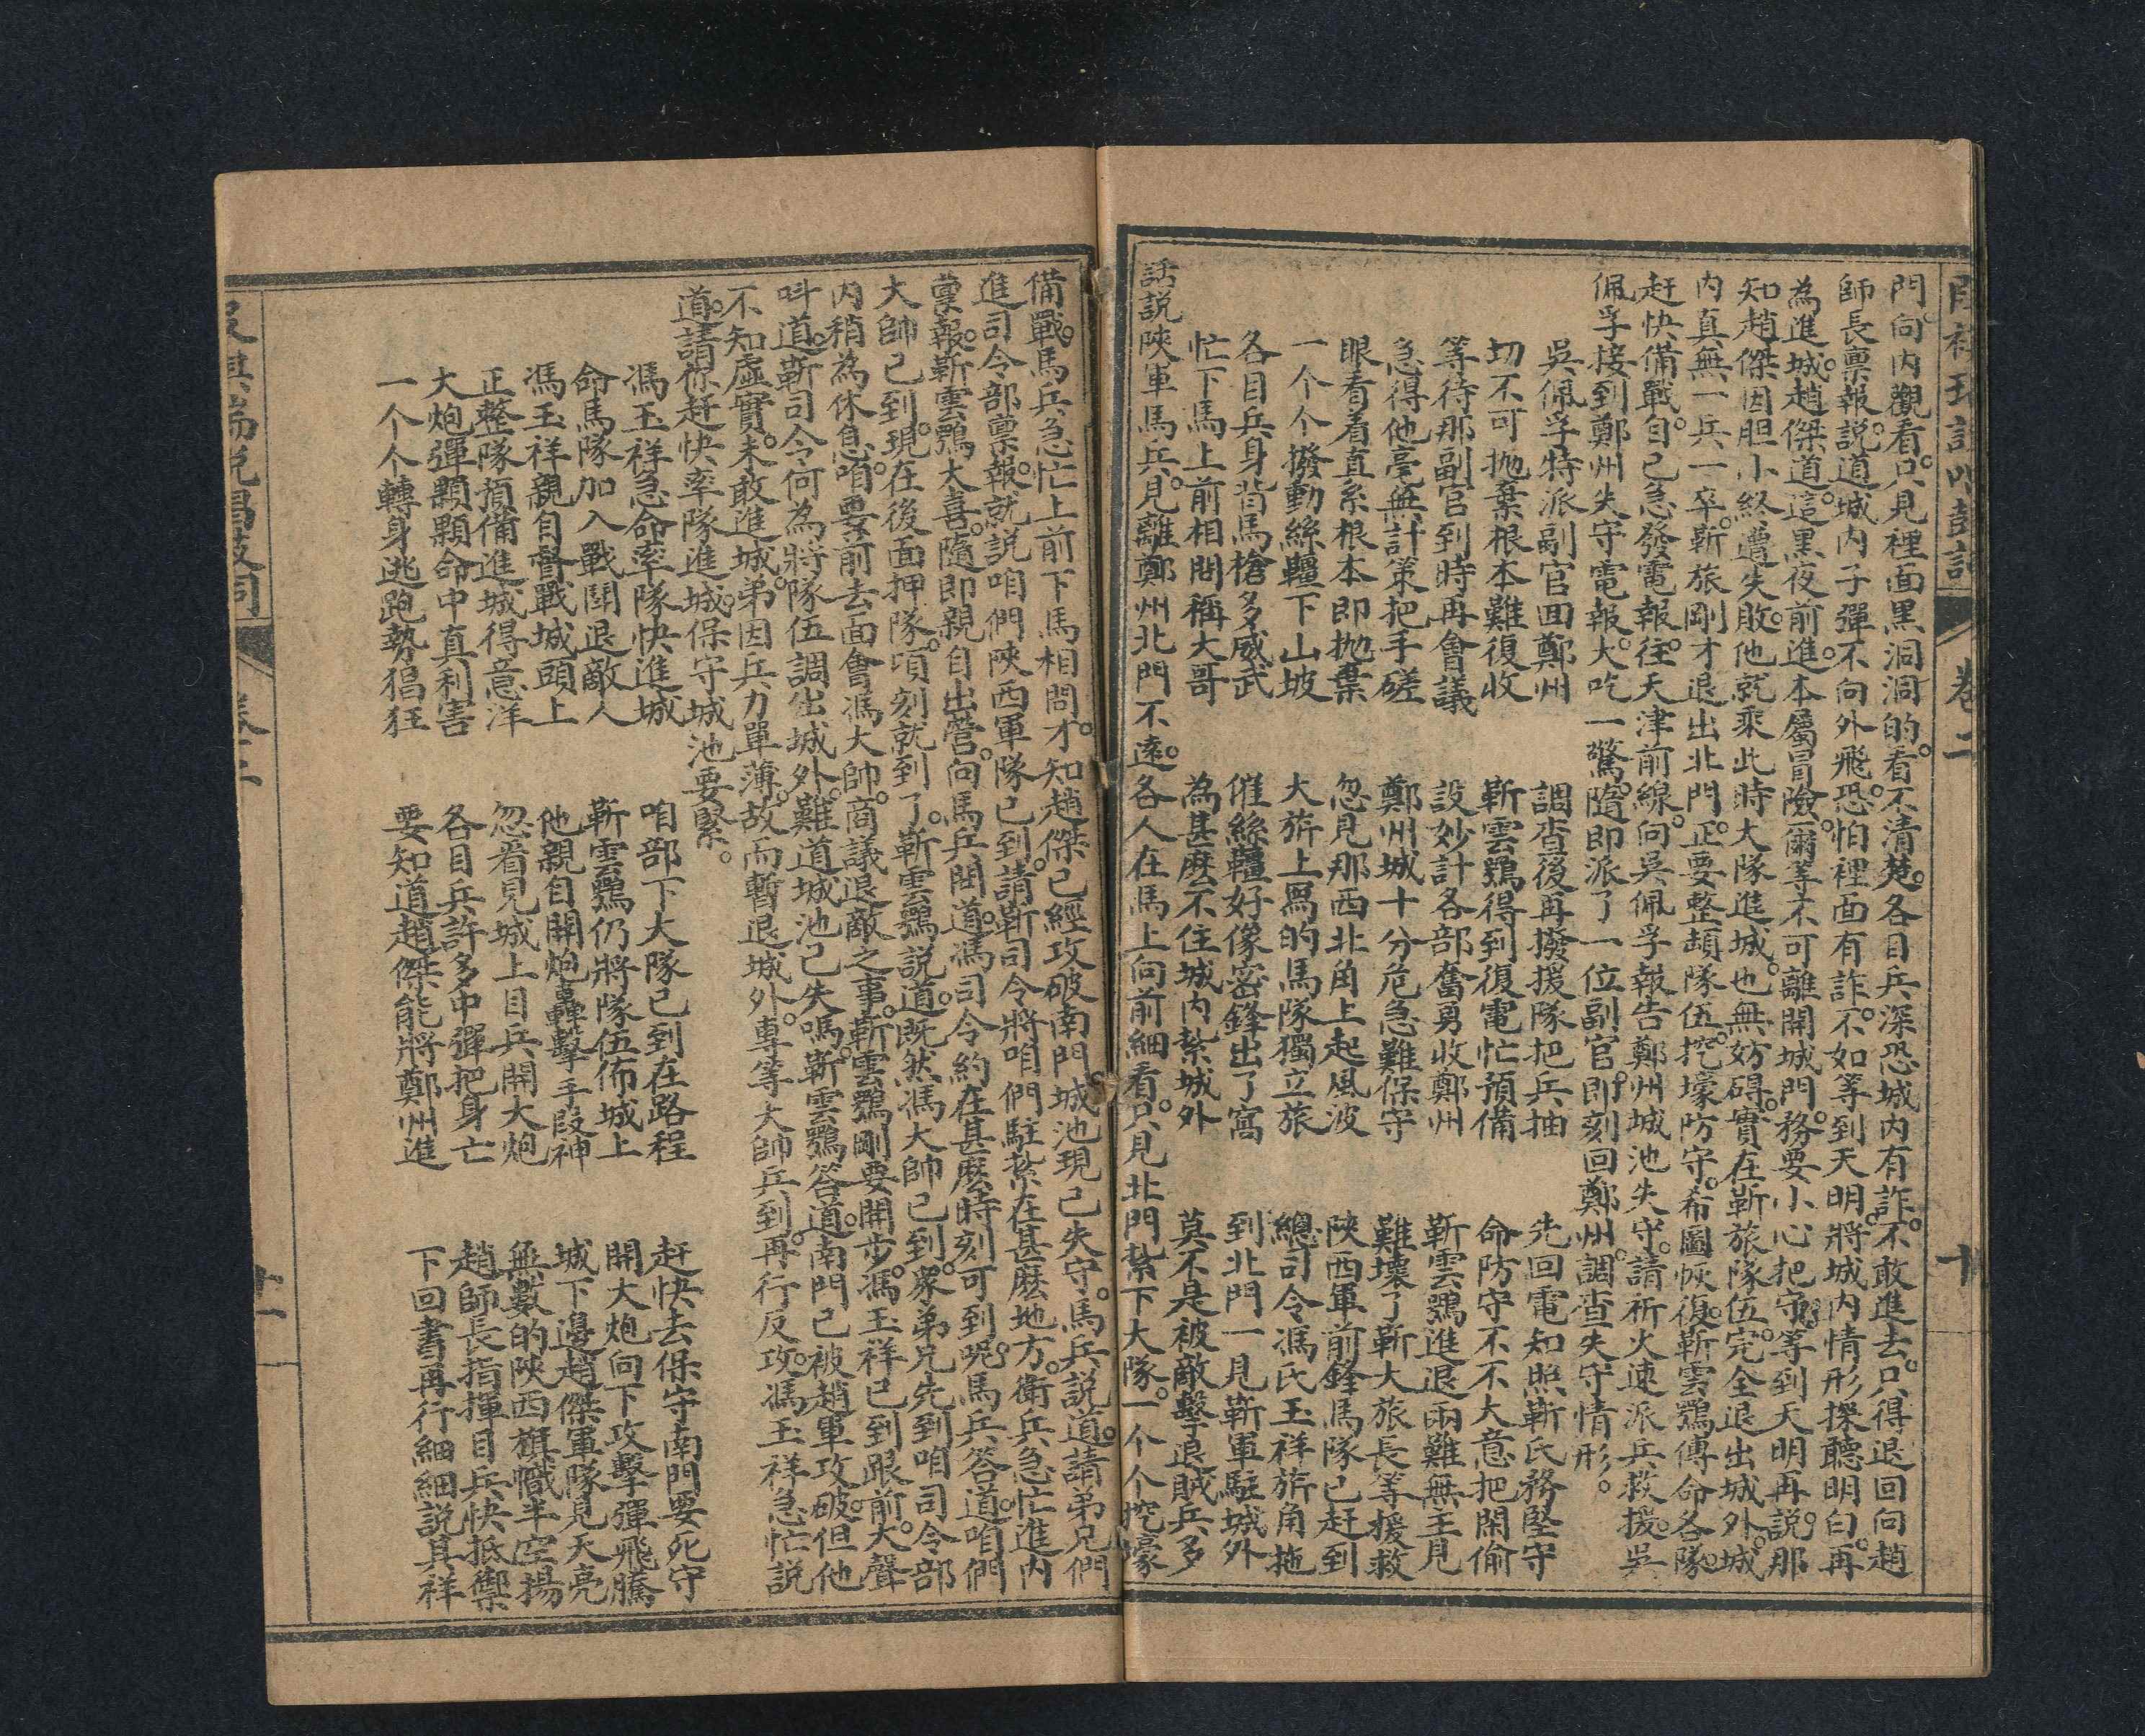 卷二
十
門。向內觀看。只見裡面黑洞洞的。看不清楚。各目兵深恐城內有詐。不敢進去。只得退回向趙
師長禀報。説道城內子彈不向外飛。恐怕裡面有詐。不如等到天明。將城內情形探聽明白。再
為進城。趙傑道。這黑夜前進。本屬冒險。爾等不可離開城門。務要小心把守。等到天明再説。那
知趙傑因胆小終遭失敗。他就乘此時大隊進城。也無妨碍。實在靳旅隊伍完全退出城外。城
內真無一兵一卒。靳旅剛才退出北門。正要整頓隊伍。挖壕防守。希圖恢復。靳雲鶚傳命各隊。
赶快備戰。自己急發電報。往天津前線。向吳佩孚報告鄭州城池失守。請祈火速派兵救援。吳
佩孚接到鄭州失守電報。大吃一驚。隨即派了一位副官。即刻回鄭州。調查失守情形。
吳佩孚特派副官回鄭州　調查後再撥援隊把兵抽　先回電知照靳氏務堅守
切不可抛棄根本難復收　靳雲鶚得到復電忙預備　命防守不不大意把閑偷
等待那副官到時再會議　設妙計各部奮勇收鄭州　靳雲鶚進退兩難無主見
急得他毫無計策把手磋　鄭州城十分危急難保守　難壞了靳大旅長等援救
眼看着直系根本即抛棄　忽見那西北角上起風波　陝西軍前鋒馬隊已赶到
一个个撥動絲韁下山坡　大旂上寫的馬隊獨立旅　總司令馮氏玉祥旂角拖
各目兵身背馬槍多威武　催絲韁好像密鋒出了窩　到北門一見靳軍駐城外
忙下馬上前相問稱大哥　為甚麽不住城內紮城外　莫不是被敵擊退賊兵多
話説陝軍馬兵。見離鄭州北門不遠。各人在馬上向前細看。只見北門紮下大隊。一个个挖壕
備戰。馬兵急忙上前下馬相問。才知趙傑已經攻破南門。城池現已失守。馬兵説道。請弟兄們
進司令部禀報。就説咱們陝西軍隊已到。請靳司令將咱們駐紮在甚麽地方。衛兵急忙進內
禀報。靳雲鶚大喜。隨即親自出營。向馬兵問道。馮司令約在甚麽時刻可到呢。馬兵答道。咱們
大帥已到。現在後面押隊。頃刻就到了。靳雲鶚説道。既然馮大帥已到。衆弟兄先到咱司令部
內稍為休息。咱要前去面會馮大帥。商議退敵之事。靳雲鶚剛要開步。馮玉祥已到跟前。大聲
呌道。靳司令何為將隊伍調出城外。難道城池已失嗎。靳雲鶚答道。南門已被趙軍攻破。但他
不知虛實。未敢進城。弟因兵力單薄。故而暫退城外。專等大帥兵到。再行反攻。馮玉祥急忙説
道。請你赶快率隊進城。保守城池要緊。
馮玉祥急命率隊快進城　咱部下大隊已到在路程　赶快去保守南門要死守
命馬隊加入戰鬪退敵人　靳雲鶚仍將隊伍佈城上　開大炮向下攻擊彈飛騰
馮玉祥親自督戰城頭上　他親自開炮轟擊手段神　城下邊趙傑軍隊見天亮
正整隊預備進城得意洋　忽看見城上目兵開大炮　無數的陝西旗幟半空揚
大炮彈顆顆命中真利害　各目兵許多中彈把身亡　趙師長指揮目兵快抵禦
一个个轉身逃跑勢猖狂　要知道趙傑能將鄭州進　下回書再行細細説其祥